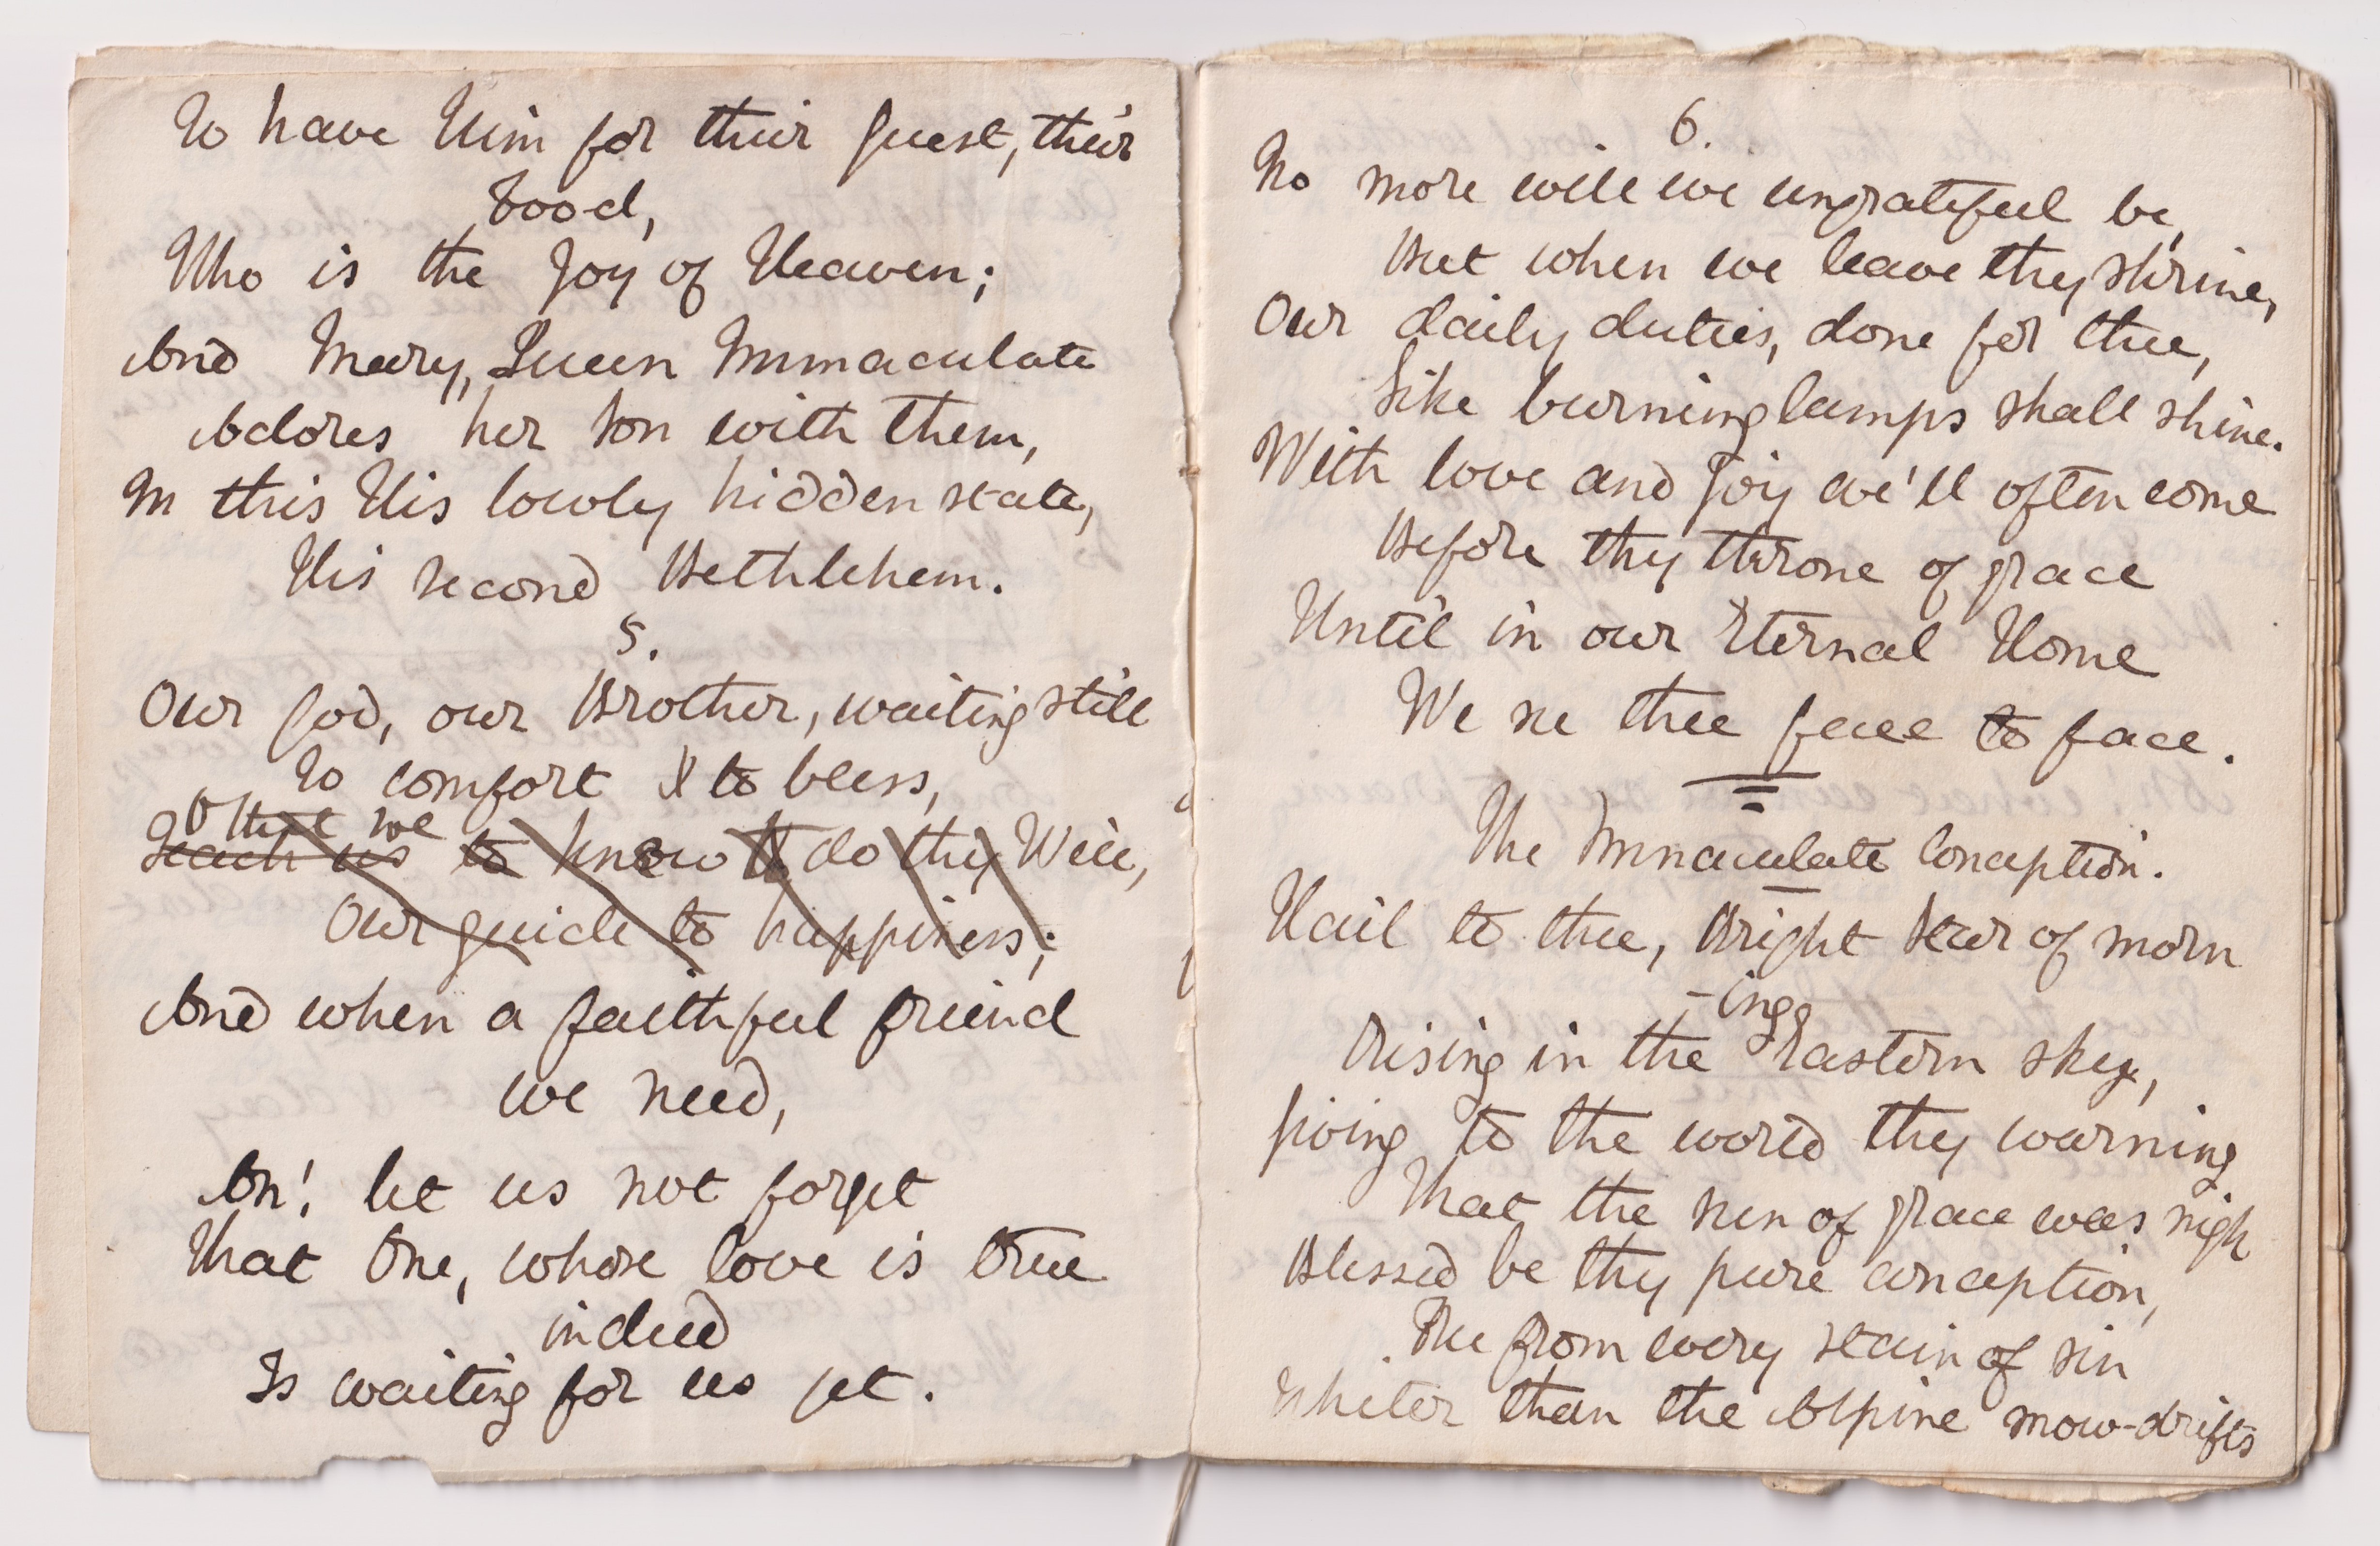 To have Him for their Guest, their
Food,
Who is the Joy of Heaven;
And Mary, Queen Immaculate
Adores her Son with them,
In this His lowly hidden state,
His second Bethlehem.
5.
Our God, our Brother, waiting still
To comfort & to bless,
O that we
Teach us to know & do thy Will,
Our guide to happiness;
And when a faithful friend
we need,
Ah! let us not forget
That One, whose love is true
indeed
Is waiting for us yet.
6.
No more will we ungrateful be,
But when we leave thy shrine,
Our daily duties, done for thee,
Like burning lamps shall shine.
With love and Joy we'll often come
Before thy throne of grace
Until in our Eternal Home
We see thee face to face.
The Immaculate Conception.
Hail to thee, Bright Star of morn
-ing
Rising in the Eastern sky,
Giving to the world thy warning
That the sun of grace was nigh
Blessed be thy pure conception,
Free from every stain of sin
Whiter than the Alpine snow-drifts